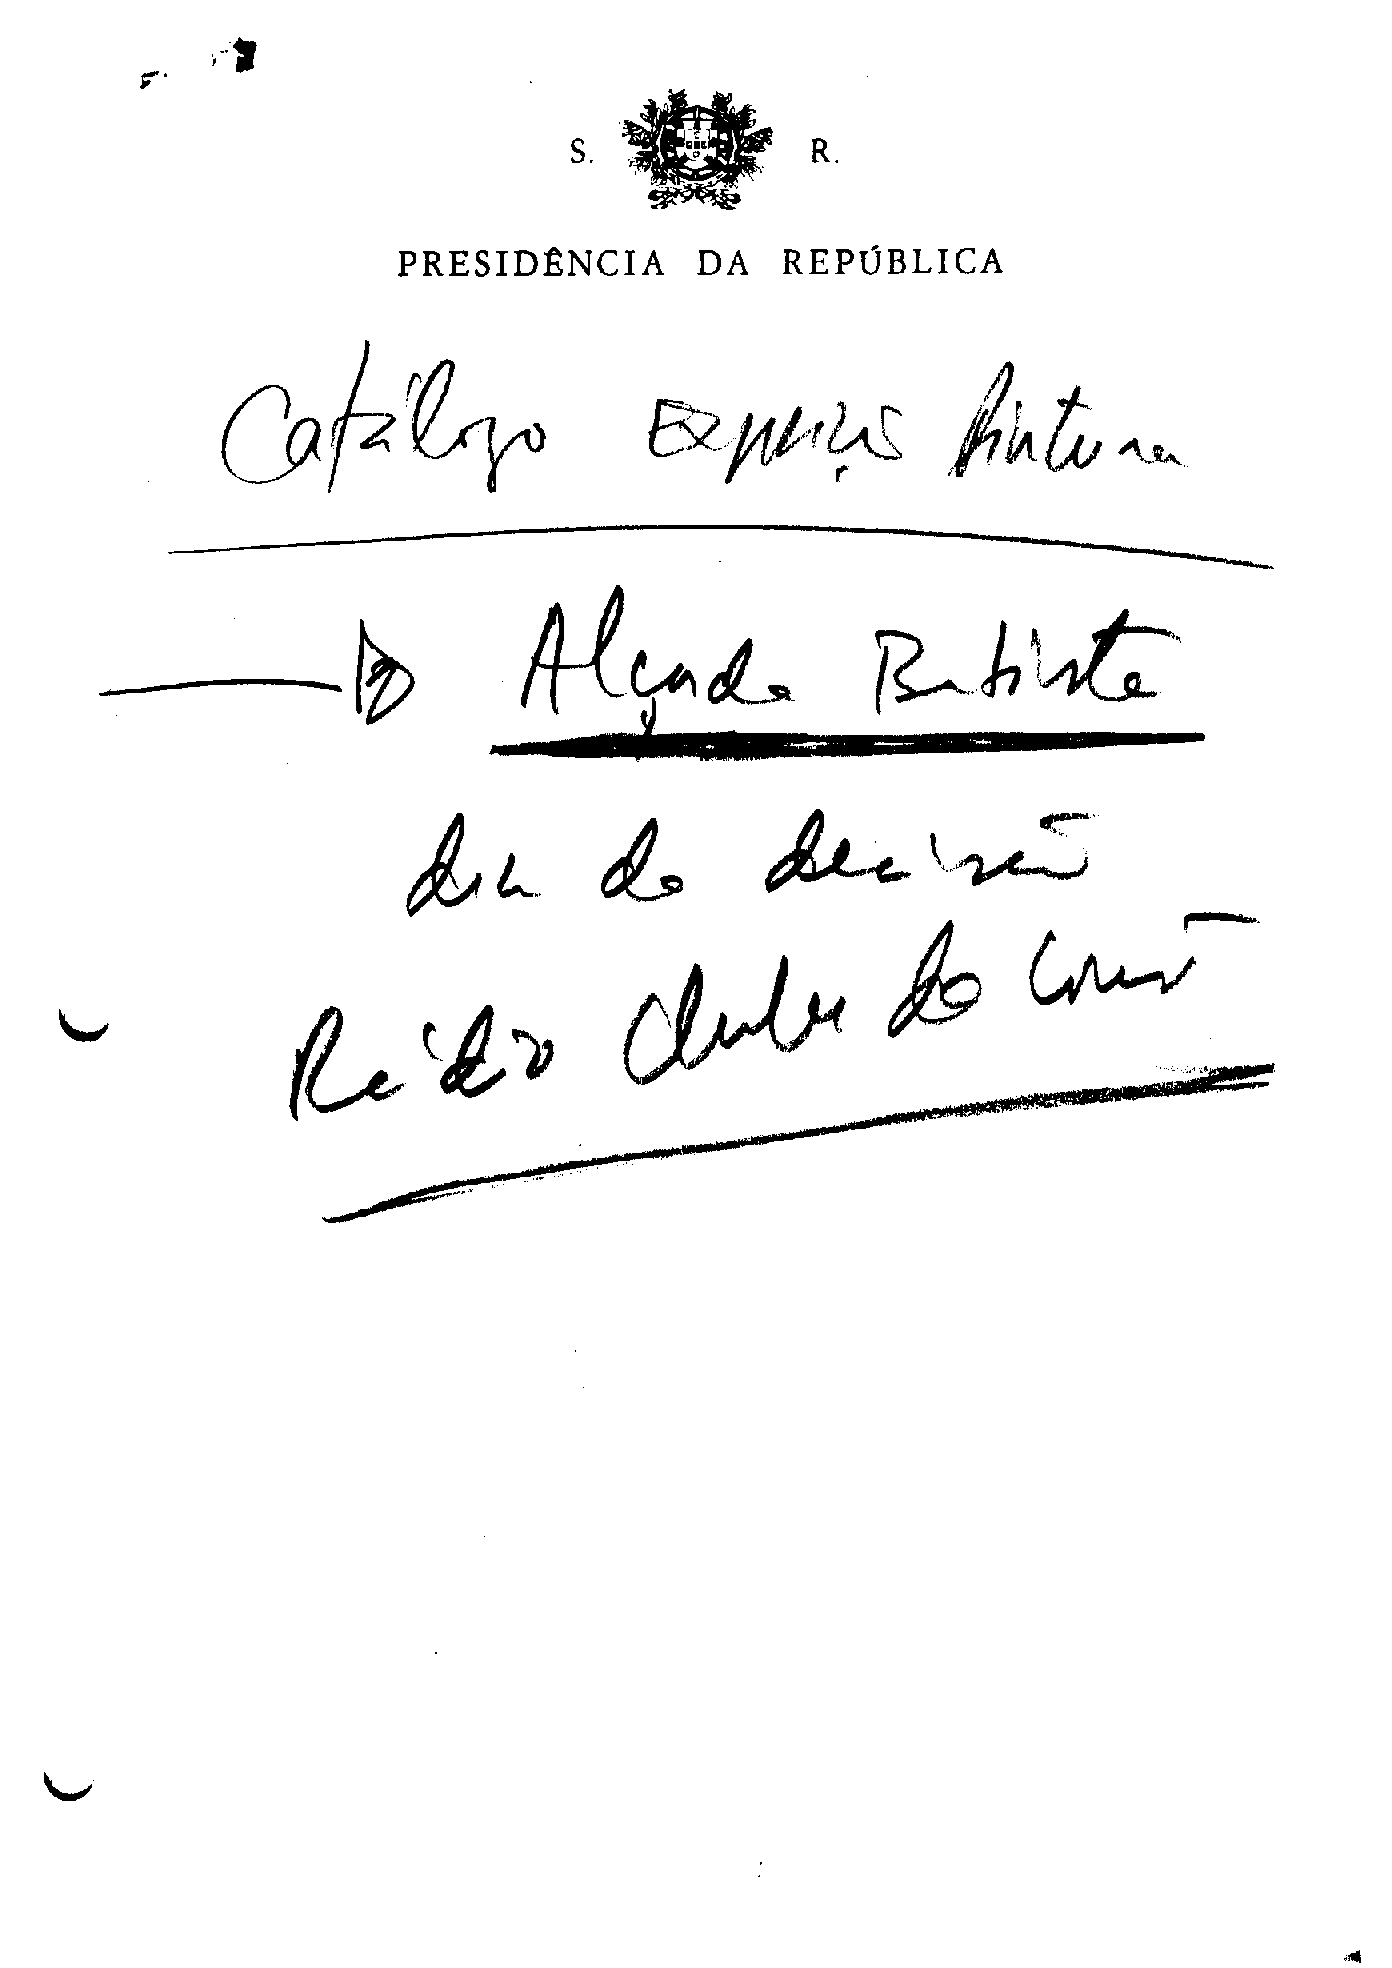 S. R.
PRESIDÊNCIA DA REPÚBLICA
Catálogo Exposição Pintura
Alçada Batista
dia da decisão
Rádio Clube de